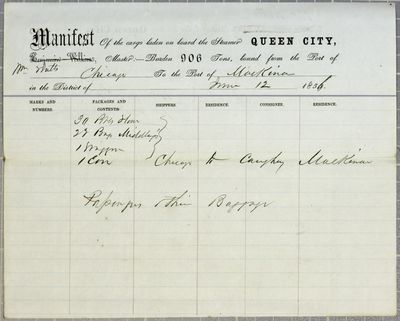 Manifest Of the cargo laden on board the Steamer QUEEN CITY,
Benjamin Wilkins, Master—Burden 906 Tons, bound from the Port of
Wm Watts Chicago To the Port of Mackinac
in the District of June 12 1856
MARKS AND NUMBERS. PACKAGES AND CONTENTS. SHIPPERS. RESIDENCE. CONSIGNEE. RESIDENCE.
30 Bbls Flour
27 Bags Middlings
1 Wagon
1 Cow Chicago to Mackinac
Passengers & their Baggage